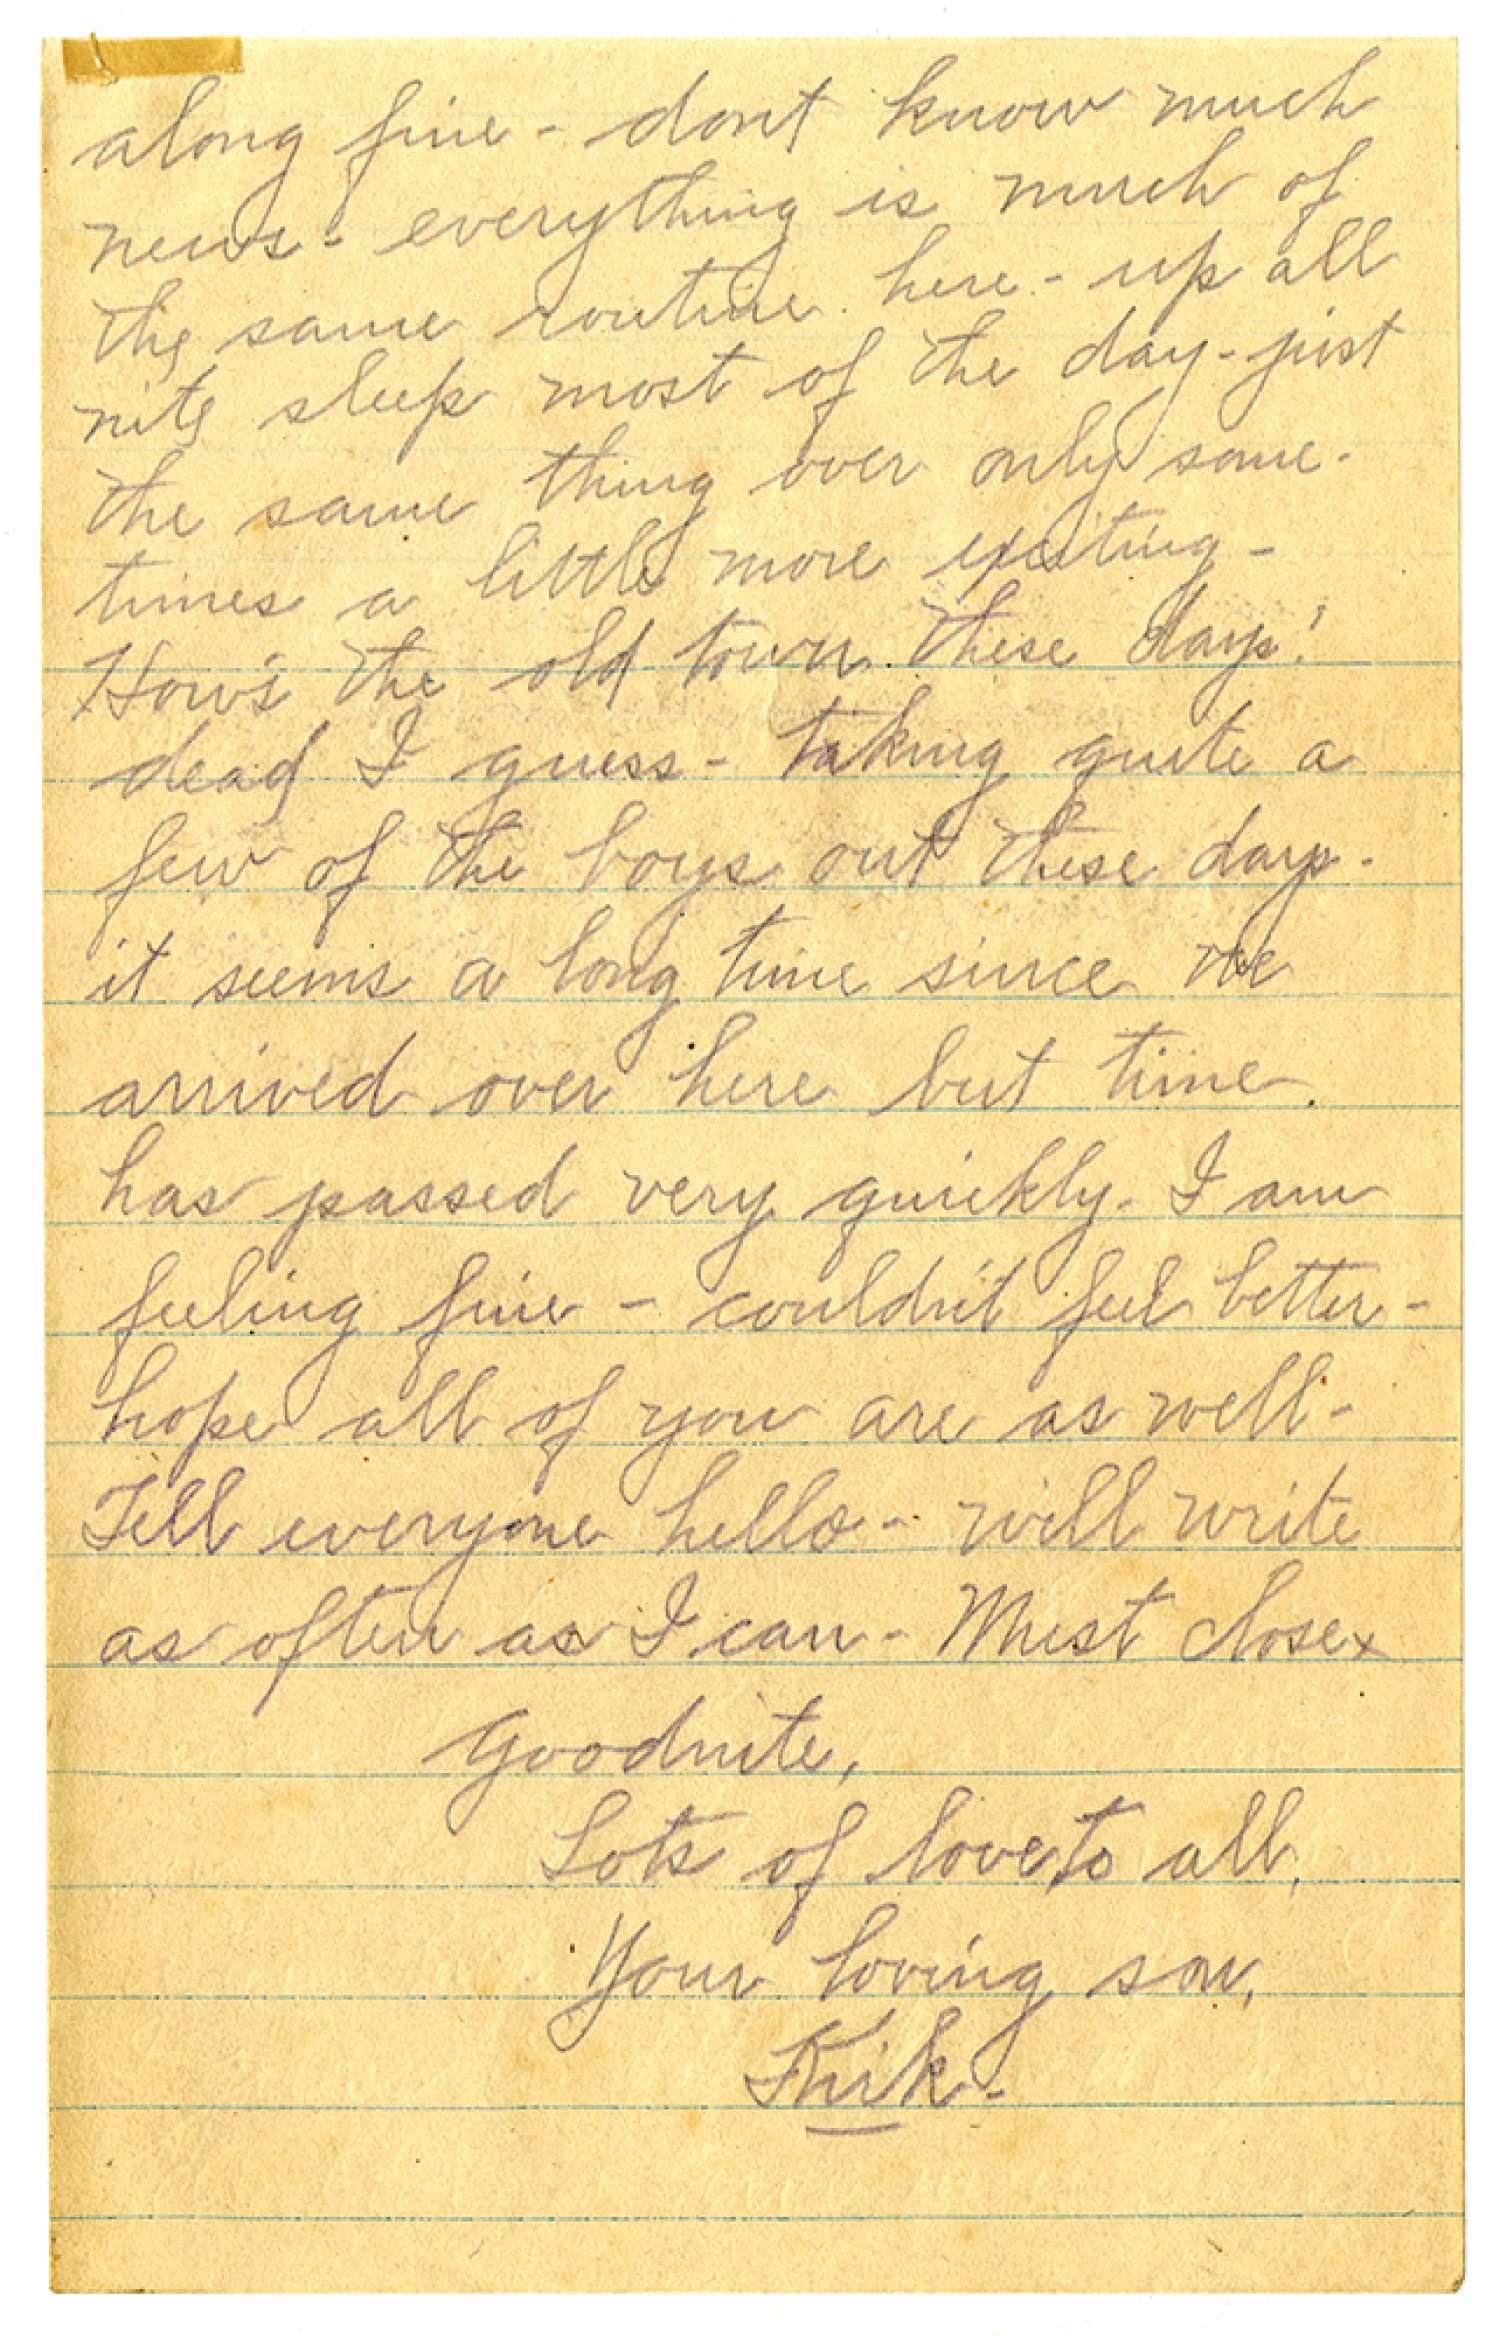 along fine - dont know much
news - everything is much of
the same routine here - up all
nite sleep most of the day - just
the same thing over only some-
times a little more exciting -
How's the old town these days!
dead I guess - taking quite a
few of the boys out these days -
it seems a long time since we
arrived over here but time
has passed very quickly. I am
feeling fine - couldn't feel better -
hope all of you are as well -
Tell everyone hello - will write
as often as I can - Must close
Goodnite,
Lots of love to all,
Your loving son,